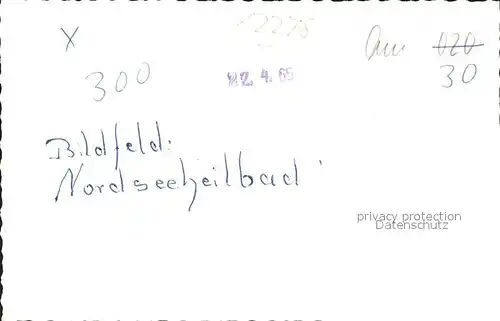 X
300
22.4.65
30
Bildfeld:
Nordseeheilbad
privacy protection
Datenschutz